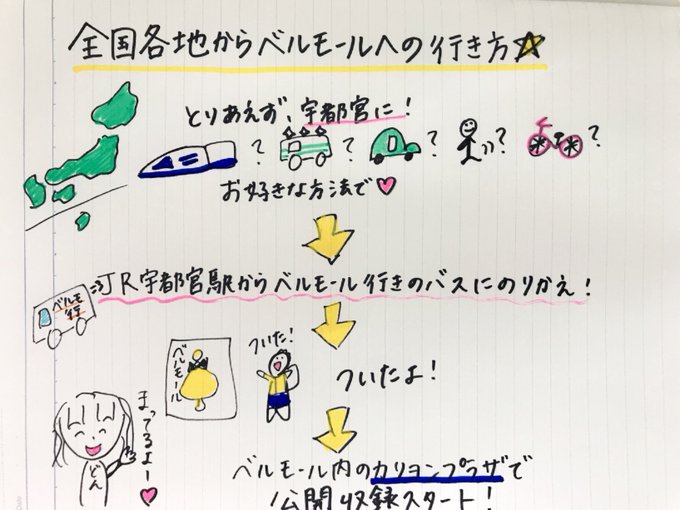 全国各地からベルモールへの行き方☆
とりあえず、宇都宮に！
? ? ? ? ?
お好きな方法で♡
JR宇都宮駅からベルモール行きのバスにのりかえ！
ベルモ
行
ベルモール
ついた！
ついたよ！
まってるよー♡
どん
ベルモール内のカリヨンプラザで
公開収録スタート！